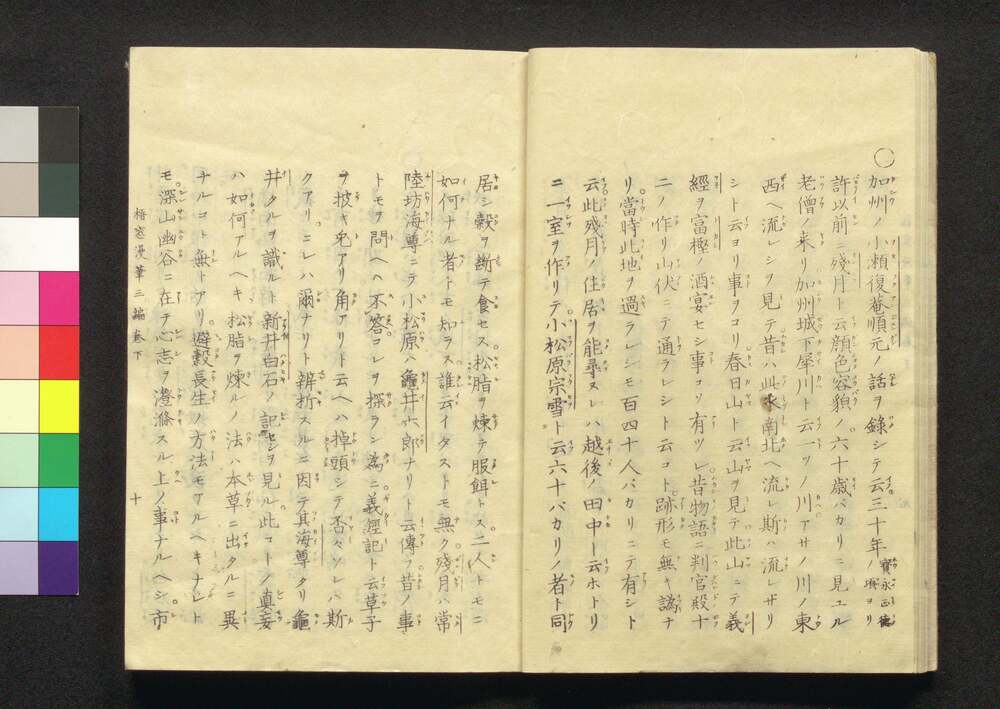 〇加州ノ小瀬復菴順元ノ話ヲ録シテ云三十年寳永正徳ノ頃ヨリ
許以前ニ残月ト云顔色容貌ノ六十歳バカリニ見ユル
老僧ノ来リ加州城下犀川ト云一ツノ川アサノ川ノ東
西ヘ流レシヲ見テ昔ハ此水南北ヘ流レ斯ハ流レザリ
シト云ヨリ事ヲコリ春日山ト云山ヲ見テ此山ニテ義
經ヲ富樫ノ酒宴セシ事コソ有ツレ昔物語ニ判官殿十
二ノ作リ山伏ニテ通ラレシト云コト跡形モ無キ譌ナ
リ當時此地ヲ過ラレシモ百四十人バカリニテ有シト
云此残月ノ住居ヲ能尋ヌレハ越後ノ田中ト云ホトリ
ニ一室ヲ作リテ小松原宗雪ト云六十バカリノ者ト同
居シ穀ヲ断テ食セス松脂ヲ煉テ服餌トス二人トモニ
如何ナル者トモ知ラス誰云イタストモ無ク残月ハ常
陸坊海尊ニテ小松原ハ龜井六郎ナリト云傳フ昔ノ事
トモヲ問ヘハ不答コレヲ探ラン為ニ義經記ト云草子
ヲ披キ兎アリ角アリト云ヘハ掉頭シテ否々ソレハ斯
クアリコレハ爾ナリト辨折スルニ因テ其海尊タリ龜
井タルヲ識ルト新井白石ノ記セシヲ見ル此コトノ真妄
ハ如何アルヘキ松脂ヲ煉ルノ法ハ本草ニ出タルニ異
ナルコト無トアリ避穀長生ノ方法モアルヘキナレト
モ深山幽谷ニ在テ心志ヲ澄滌スル上ノ事ナルヘシ市
梧窓漫筆三編巻下
十